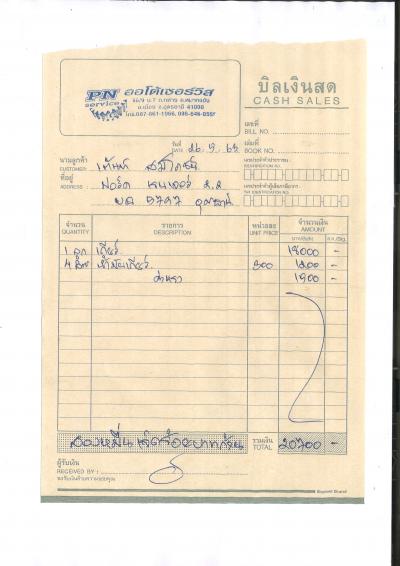 PN service ออโต้เซอร์วิส
อ.เมือง อ.อุดรธานี 41000
โทร.087-861-1966, 095-646-0557
บิลเงินสด
CASH SALES
เลขที่
BILL NO.
เล่มที่
BOOK NO.
วันที่
DATE
นามลูกค้า
CUSTOMER
ที่อยู่
ADDRESS ฟอร์ด 2.2
เลขประจำตัวประชาชน
IDENTIFICATION NO.
เลขประจำตัวผู้เสียภาษีอากร
TAX IDENTIFICATION NO.
จำนวน รายการ หน่วยละ จำนวนเงิน
QUANTITY DESCRIPTION UNIT PRICE AMOUNT
1 ลูก เกียร์ 18000 -
4 ลิตร น้ำมันเกียร์ 300 1200 -
ค่าแรง 1500 -
สองหมื่นเจ็ดร้อยบาทถ้วน รวมเงิน TOTAL 20700 -
ผู้รับเงิน
RECEIVED BY :
ขอรับเงินด้วยความขอบคุณ